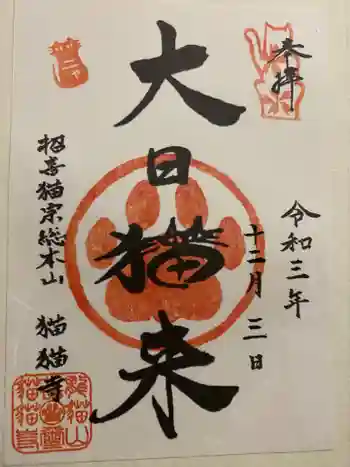 奉拝
令和三年
十二月三日
大日猫来
招喜猫宗総本山
猫猫寺